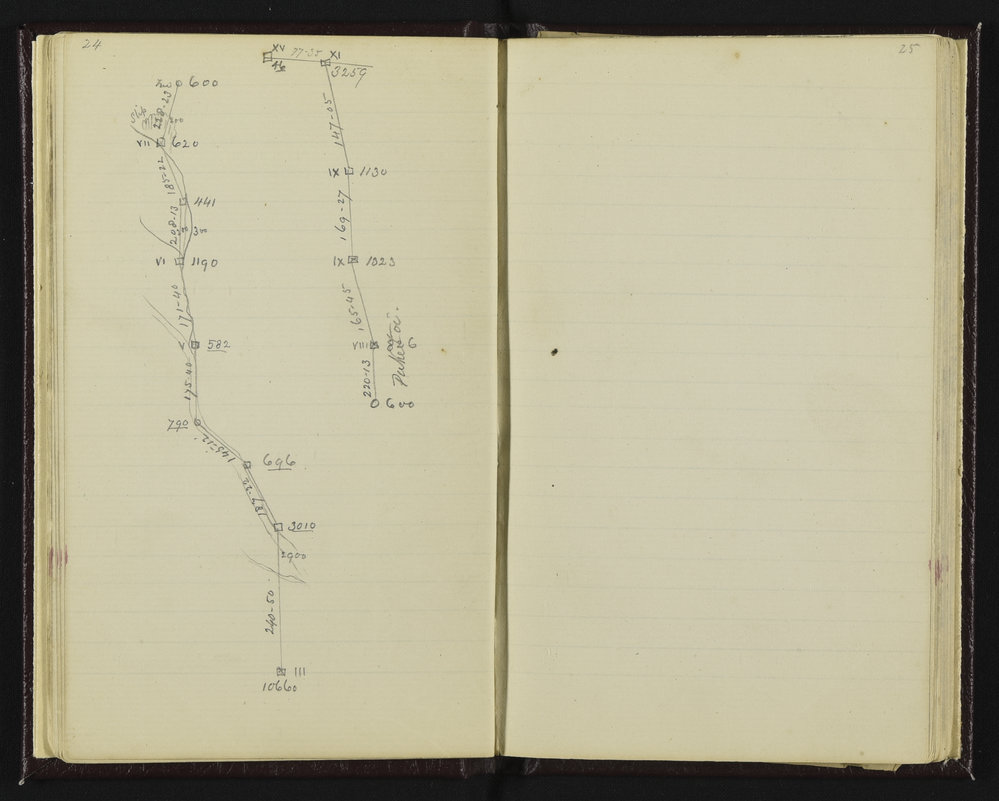 24
25
XV 77-35 XI
46
3259
600
228-23
Slip
VII 620
147-05
185-22
IX 1130
441
208-13
300
169-27
VI 1190
IX 1323
171-40
165-45
V 582
VIII 6
175-40
220-13
600
790
145-12
696
187-22
3010
2900
240-50
III
10660